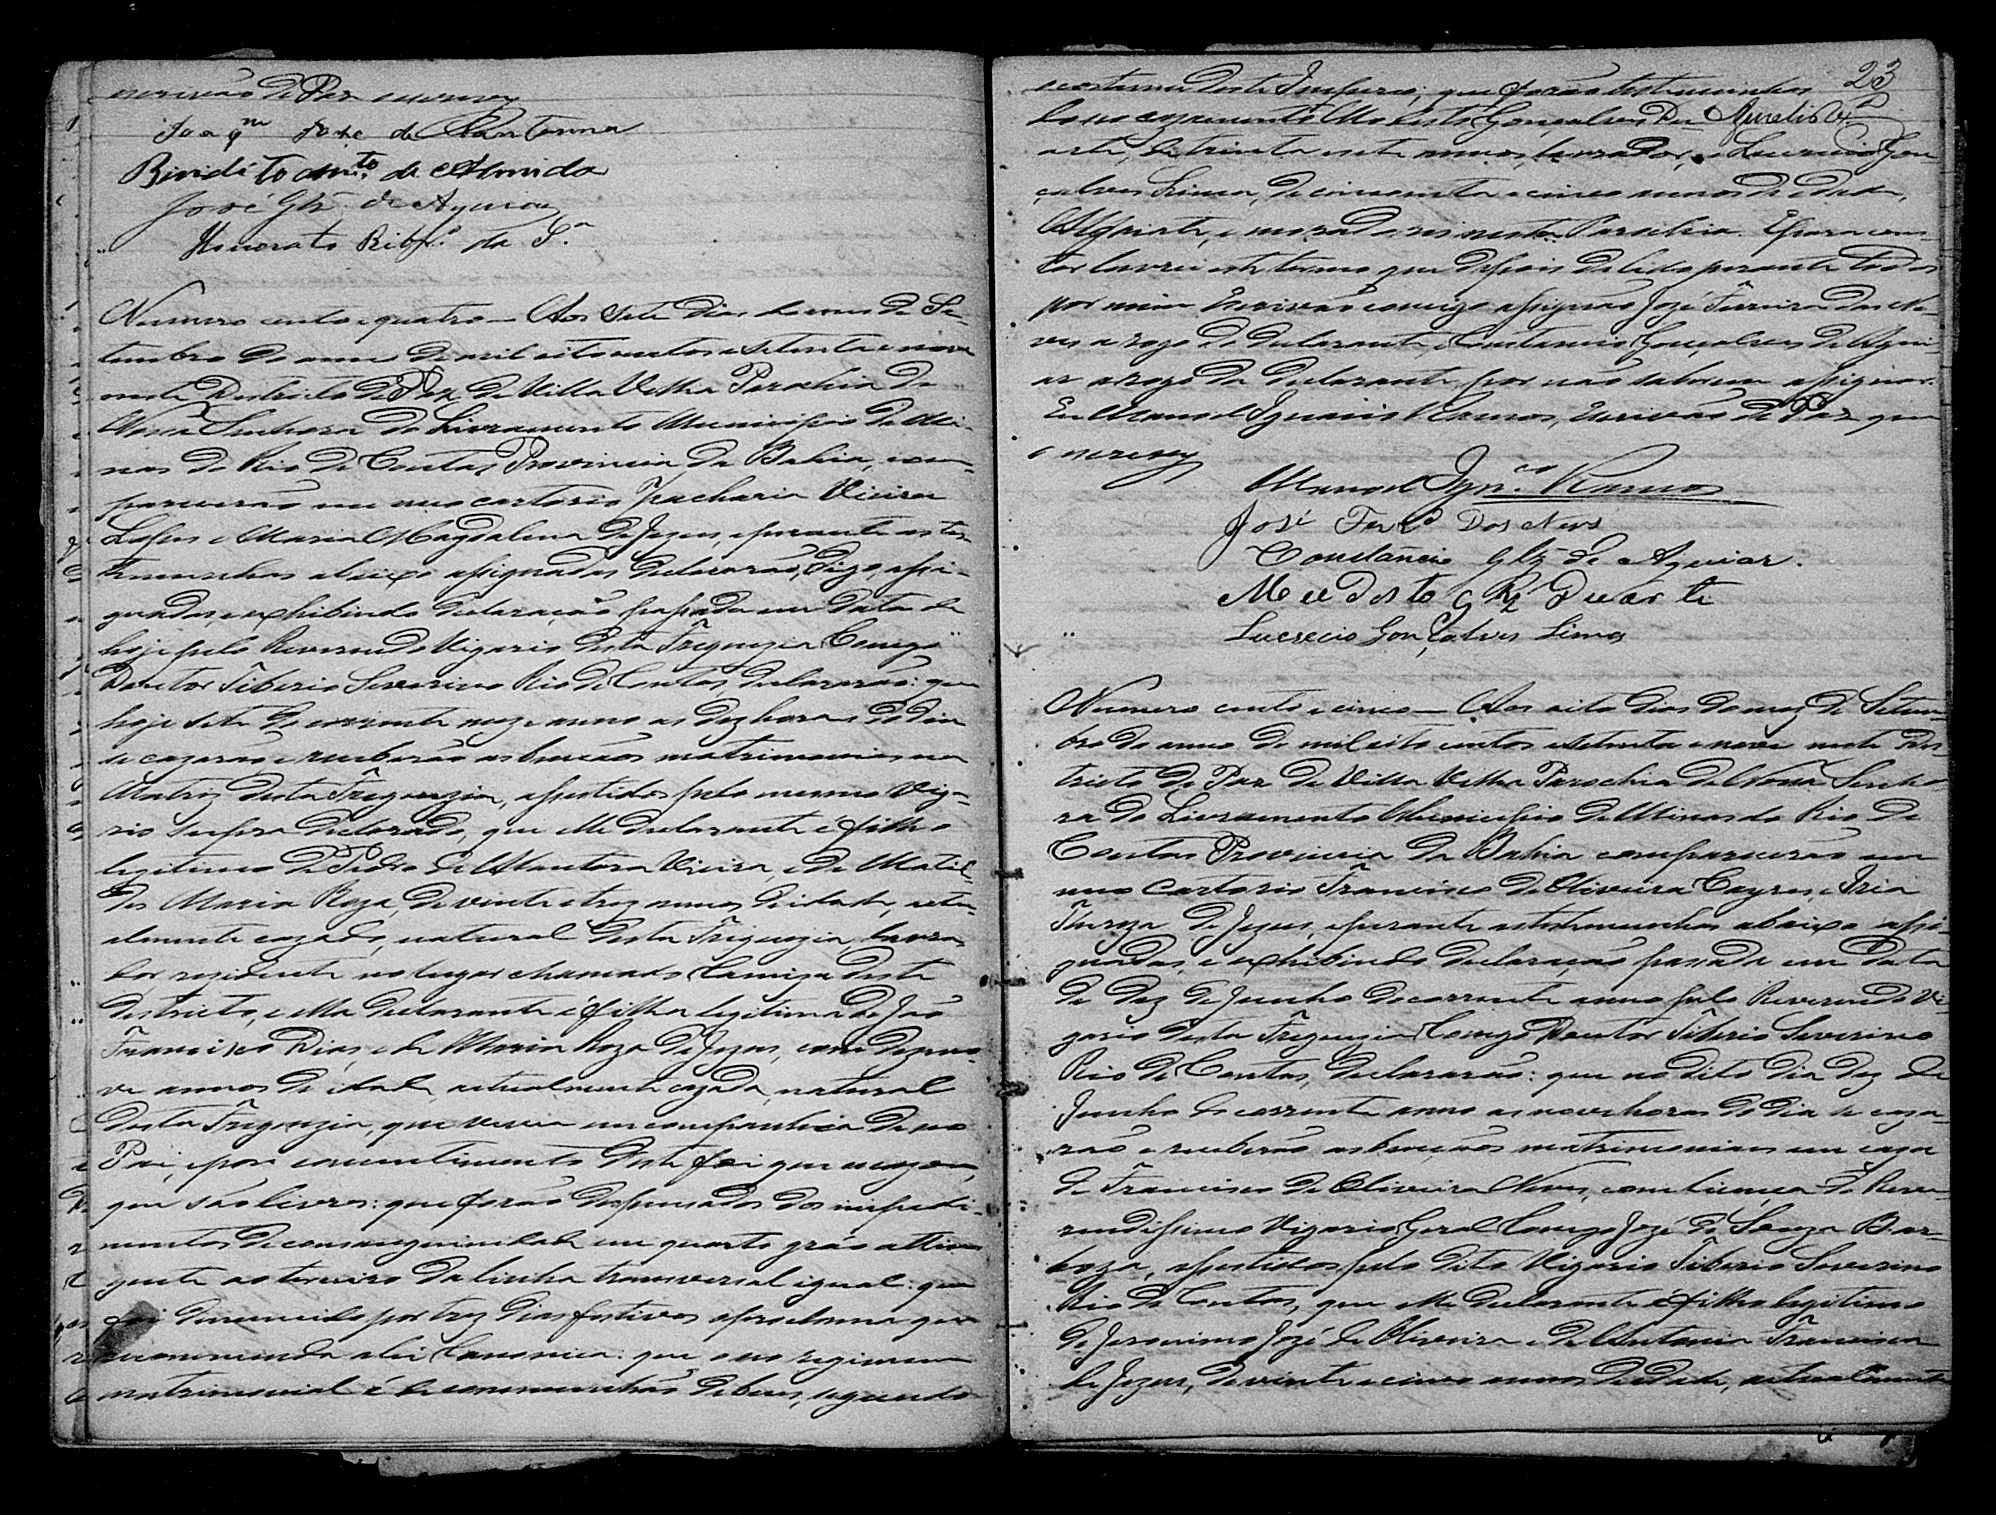 escrivão de Paz escrevy
Joaq.m José de Santanna
Bindito Ant.to de Almida
José Glz de Aguiar
Honorato Ribr.o da S.a
Numero cento e quatro — Aos Sete dias do mes de Se-
tembro do anno de mil oito centos e setenta e nove
neste Destricto de Paz de Villa Velha Parochia de
Nossa Senhora do Livramento Municipio de Mi-
nas do Rio de Contas, Provincia da Bahia, com-
parecerão em meo cartorio Zacharia Vieira
Lopes e Maria Magdalena de Jezus, e perante as tes-
temunhas abaixo assignadas declararão, digo, assi-
gnadas, e exhibindo declaração passada em data de
hoje pelo Reverendo Vigario desta Freguezia Conego
Doutor Tiberio Severino Rio de Contas, declararão: que
hoje sete do corrente mez e anno as dez horas do dia
se cazarão e receberão as bençãos matrimoniaes na
Matriz desta Freguezia, assistidos pelo mesmo Viga-
rio supra declarado, que elle declarante é filho
legitimo de Pedro de Vieira, e de Matil-
des Maria Roza, de vinte e trez annos de idade, actu-
almente cazado, natural desta Freguezia, lavra-
dor rezidente no lugar chamado Camiza deste
destricto, e ella declarante é filha legitima de João
Francisco Dias e de Maria Roza de Jezus, com dezeno-
ve annos de idade, actualmente cazada, natural
desta Freguezia, que vevia em companhia de seo
Pai, e por concentimento deste foi que se cazou,
que são livres: que forão despensados dos impedi-
mentos de consanguinidade em quarto gráo attin-
gente ao terceiro da linha transversal igual: que
foi denunciado por trez dias festivos a proclama que
recommenda a lei Canonica: que o seo regimem
matrimonial é de communhão de bens, segundo
23
o costume deste Imperio; que forão testemunhas
do seo cazamento Modesto Gonçalves Du-
arte, de trinta e sete annos, lavrador, e Lucrecio Gon-
çalves Lima, de cincoenta e cinco annos de idade,
Alfaiate, e moradores nesta Parochia. E para cons-
tar lavrei este termo que depois de lido perante todos
por mim Escrivão comigo assignão José Ferreira das Ne-
ves a rogo do declarante, e Constancio Gonçalves de Agui-
ar a rogo da declarante, por não saberem assignar.
Eu Manoel Ignacio Ramos, Escrivão de Paz que
o escrevy
Manoel Ign.co Ramos
José Ferr.a Das Neves
Constancio Glz de Aguiar.
Meudosto Glz Duarte
Lucrecio Gonçalves Lima
Numero cento e cinco — Aos oito dias do mez de Setem-
bro do anno de mil oito centos e setenta e nove neste Des-
tricto de Paz de Villa Velha Parochia de Nossa Senho-
ra do Livramento Municipio de Minas do Rio de
Contas Provincia da Bahia comparecerão em
meo Cartorio Francisco de Oliveira Cayres, e Iria
Thereza de Jezus, e perante as testemunhas abaixo assi-
gnadas, e exhibindo declaração passada em data
de dez de Junho do corrente anno pelo Reverendo Vi-
gario desta Freguezia Conego Doutor Tiberio Severino
Rio de Contas, declararão: que no dito dia dez de
Junho do corrente anno as nove horas do dia se caza-
rão e receberão as bençãos matrimoniaes em caza
de Francisco de Oliveira Neves, com licença do Reve-
rendissimo Vigario Geral Conego José de Souza Bar-
boza, assistidos pelo dito Vigario Tiberio Severino
Rio de Contas, que elle declarante é filho legitimo
de Jeronimo José de Oliveira e de Antonia Francisca
de Jezus, de vinte e cinco annos de idade, actualmente